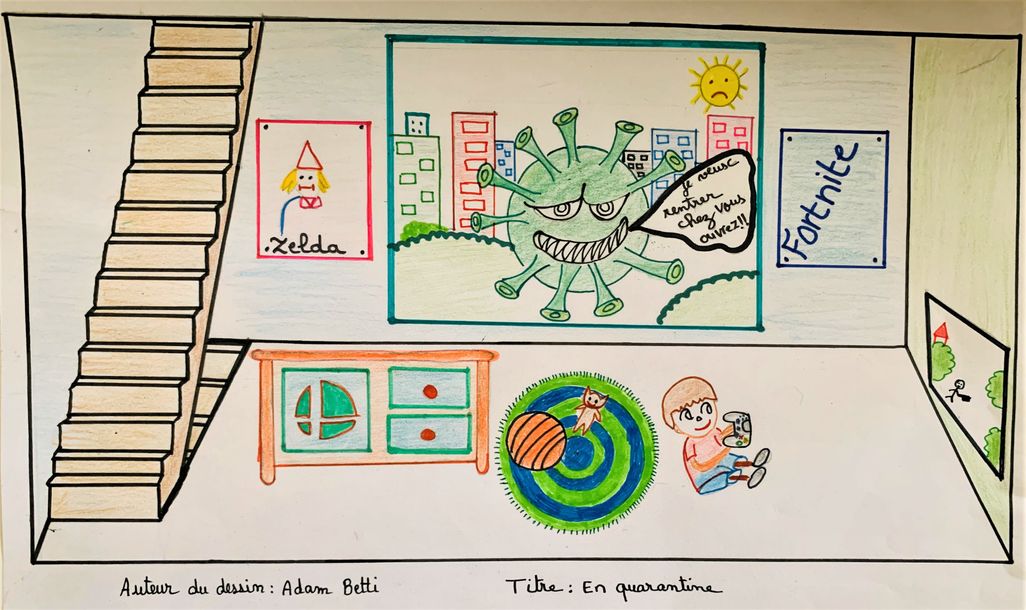 je veusc
rentrer
chez vous
ouvrez!!
Zelda
Fortnite
Auteur du dessin : Adam Betti
Titre : En quarantine